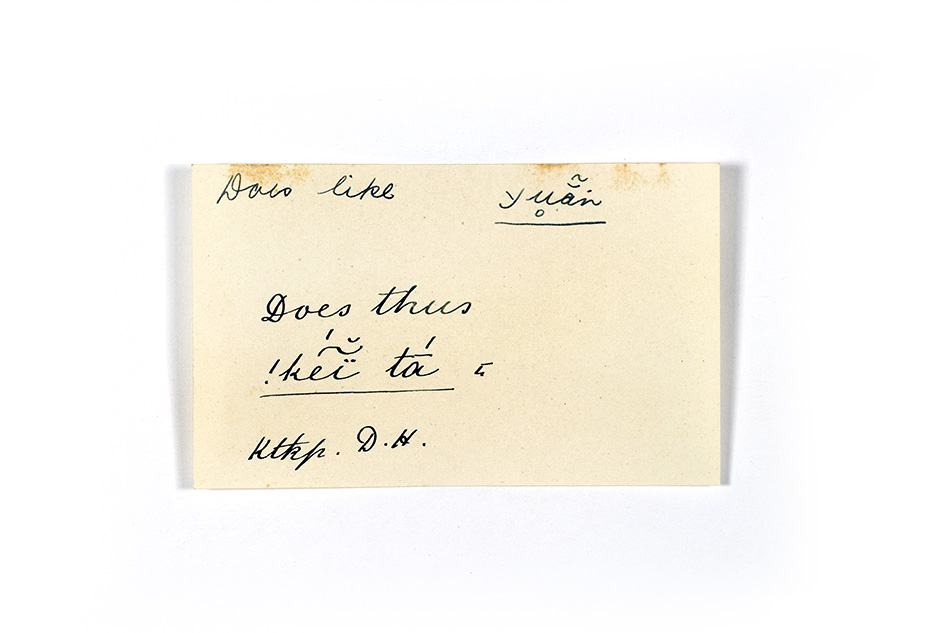 Does like
Does thus
!kéĩ tá
Ktkp. D.H.